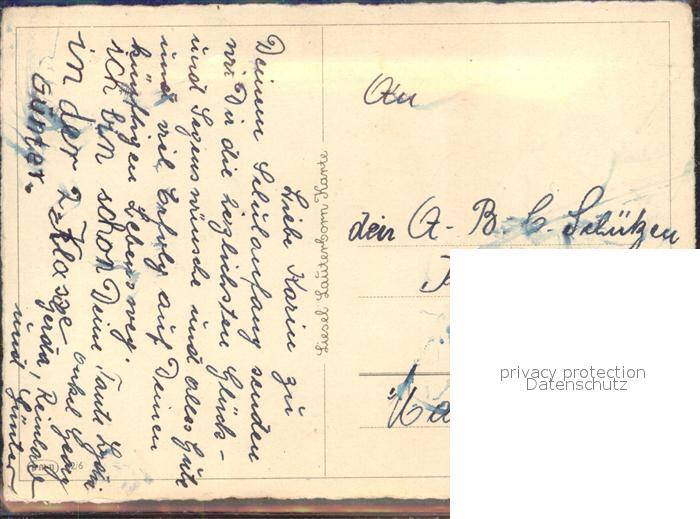 Liebe Karin zu
Deinem Schulanfang senden
wir Dir die herzlichsten Glück-
und Segenswünsche und alles Gute
und viel Erfolg auf Deinen
künftigen Lebensweg.
Deine Tante
Onkel Georg
Gerda, Reinhard
und Günter
ich bin schon
in der 2. Klasse
Günter.
Liesel Lauterborn Karte
An
den A-B-C-Schützen
privacy protection
Datenschutz